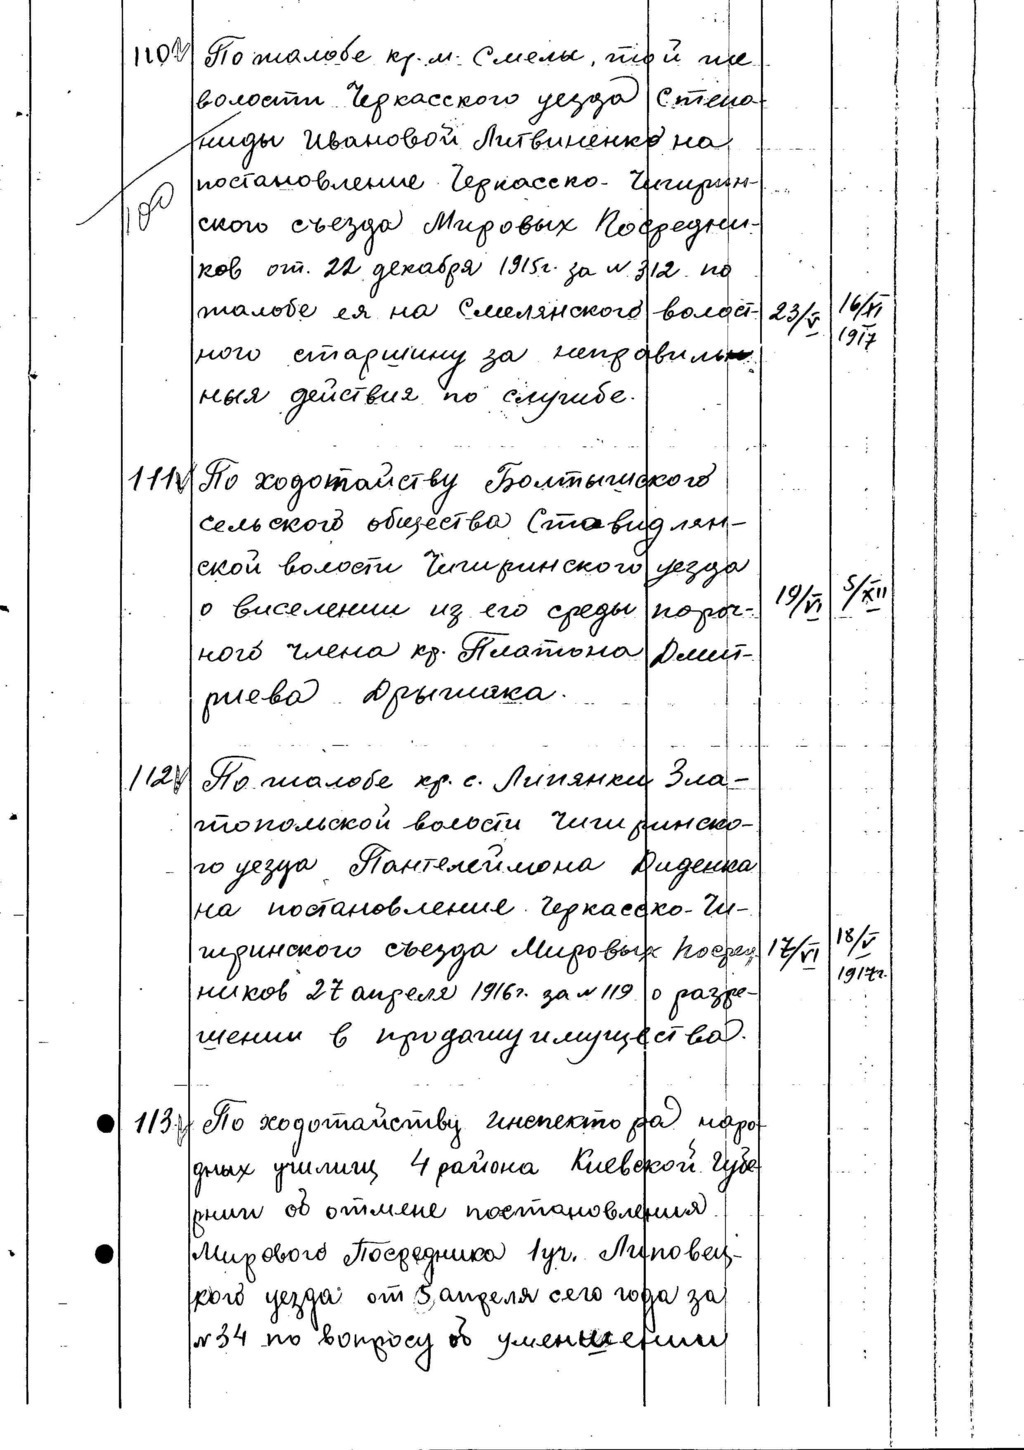 110 По жалобе кр. м. Смелы, той же
волости Черкасского уезда Степа-
ниды Ивановой Литвиненко на
постановление Черкасско-Чигирин-
100
ского съезда Мировых Посредни-
ков от 22 декабря 1915г. за № 312 по
жалобе ея на Смелянского волост- 23/V 16/XI
ного старшину за неправиль- 1917
ныя действия по службе.
111 По ходотайству Болтышского
сельского общества Ставидлян-
ской волости Чигиринского уезда
о виселении из его среды пороч- 19/VI 5/XII
ного члена кр. Платона Дмит-
риева
112 По жалобе кр. с. Липянки Зла-
топольской волости Чигиринско-
го уезда Пантелеймона Диденка
на постановление Черкасско-Чи-
гиринского съезда Мировых Посред 17/VI 18/V
ников 27 апреля 1916г. за № 119 о разре- 1917г.
шении в продажу имущества.
113 По ходотайству инспектора наро-
дных училищ 4 района Киевской Губе
рнии об отмене постановления
Мирового Посредника 1 уч. Липовец-
кого уезда от 5 апреля сего года за
№ 34 по вопросу об уменьшении